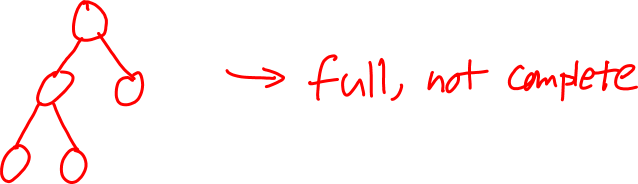 → full, not complete